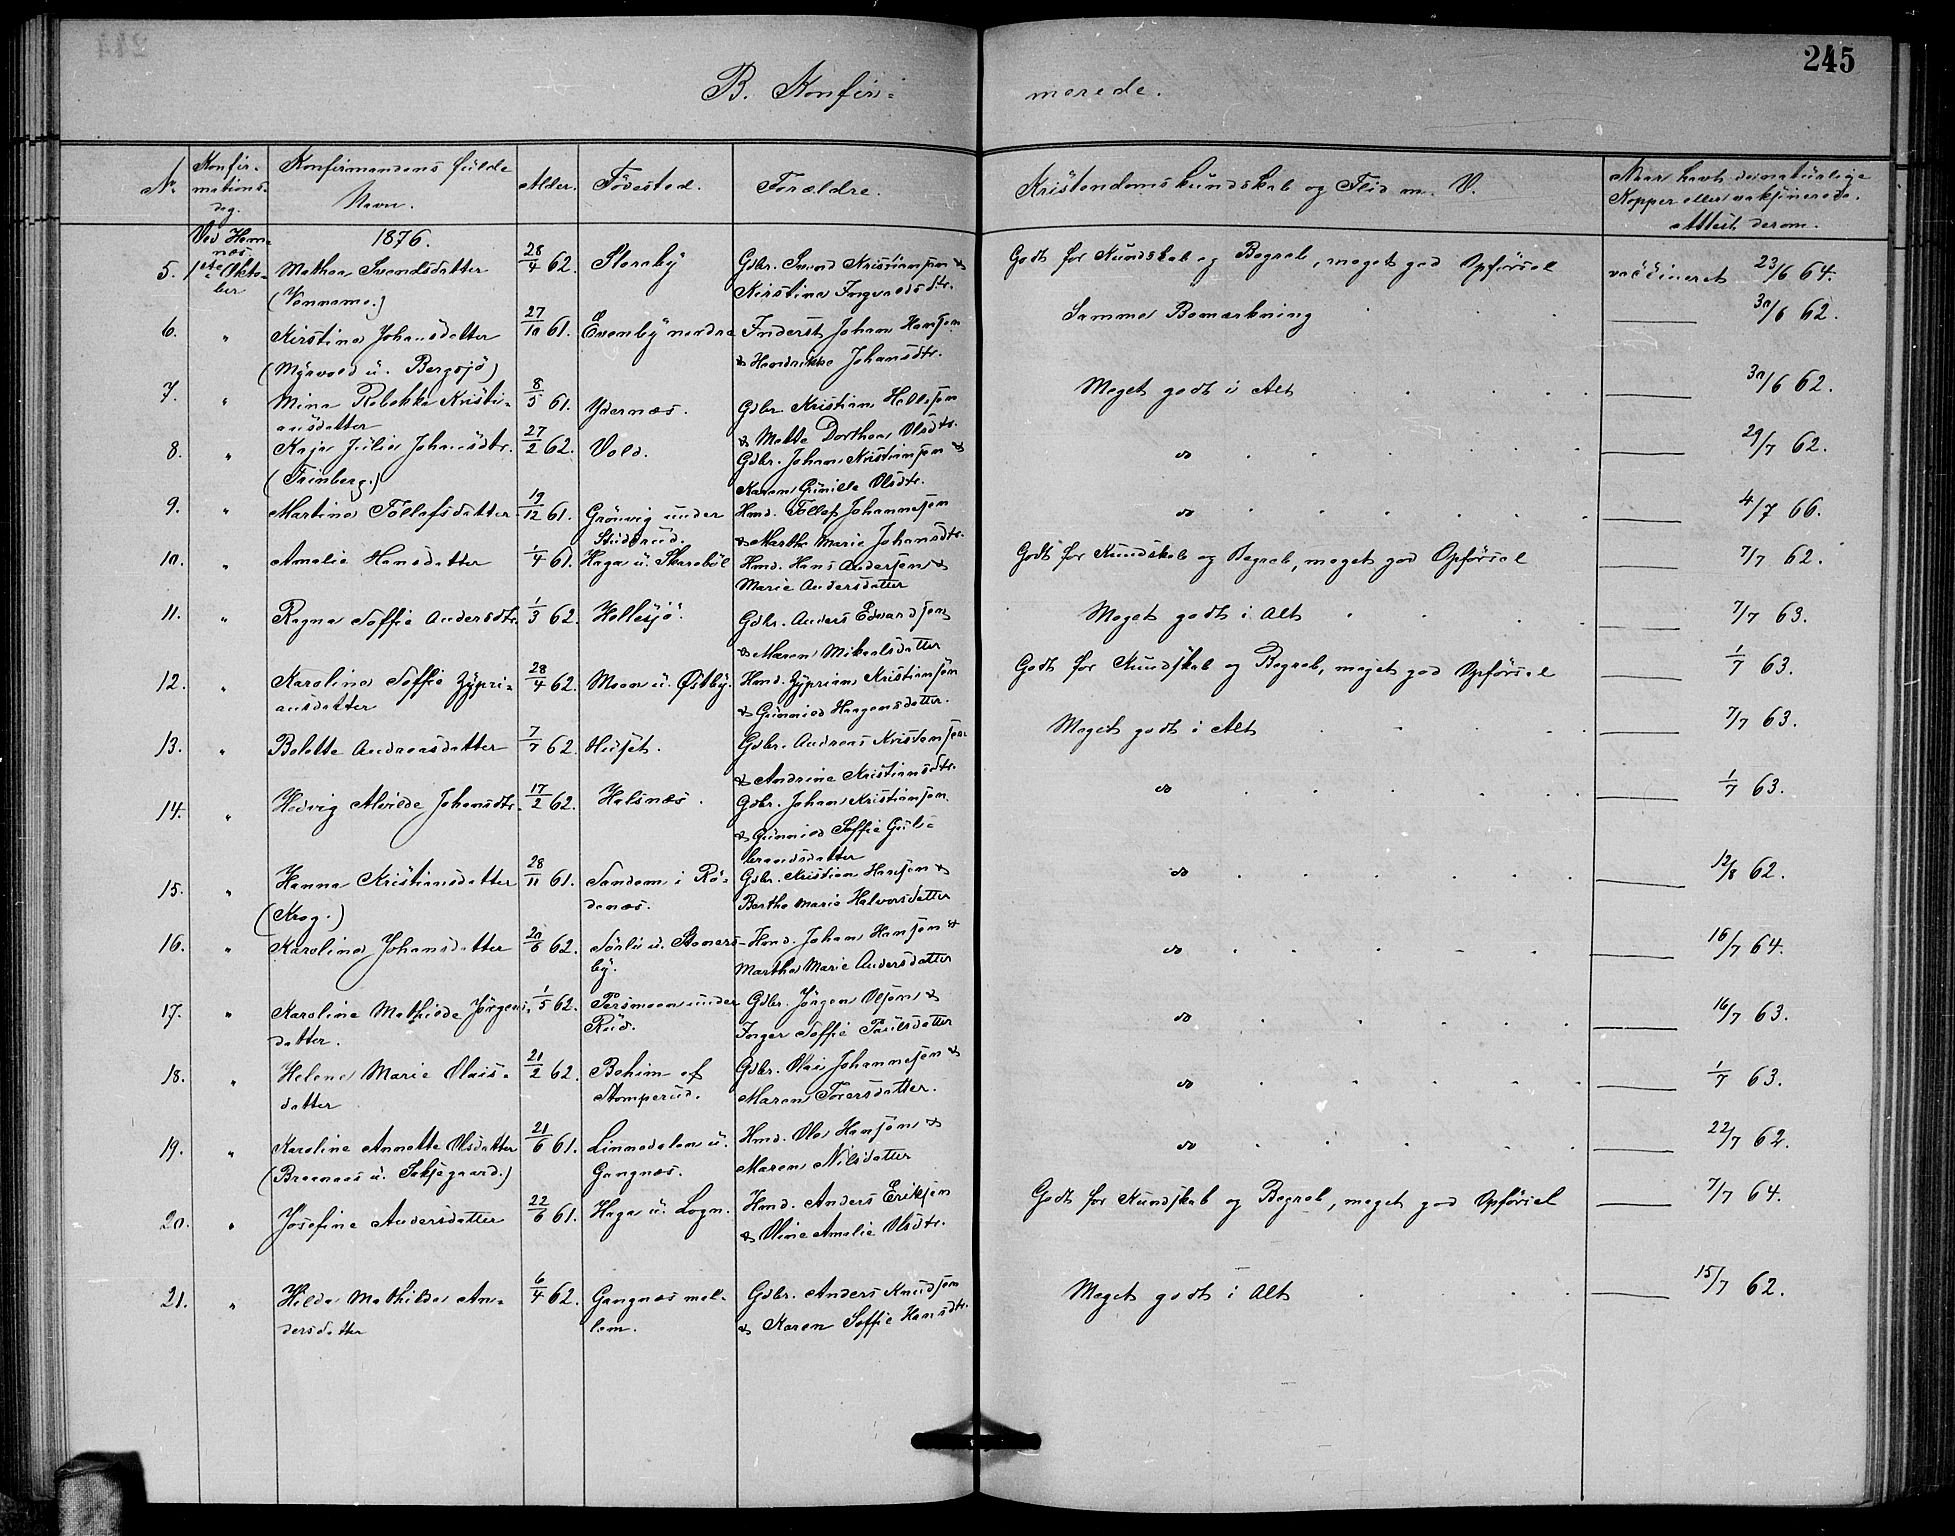 245
B. Konfir=
merede.
No.
Konfir-
mations-
dag.
Konfirmandens fulde
Navn.
Alder.
Födested.
Forældre.
Kristendomskundskab og Flid m. V.
Naar havt de naturlige
Kopper eller vaksinerede,
attest derom.
Ved Hem=
næs
1876.
5. 1ste Okto=
ber
Mathea Svendsdatter
28/4 62. Storeby
Gdbr. Svend Kristiansen &
Kirstine Ingvaldsdtr.
Godt for Kundskab og Begreb, meget god Opførsel
vaccineret 23/6 64.
(Vannæme.)
6. " Kirstine Johansdatter
27/10 61. Evenby nordre
Inderst Johan Hansen
& Hendrikke Johansdtr.
Samme Bemærkning
30/6 62.
(Myrvold u. Bergsjö)
7. " Mina Rebekka Kristi-
ansdatter
8/5 61. Ydernæs.
Gdbr. Kristian Hellesen
& Mette Dorthea Olsdtr.
Meget godt i Alt
30/6 62.
8. " Kaja Julie Johansdtr.
27/2 62. Vold.
Gdbr. Johan Kristiansen &
Karen Gunille Olsdtr.
do
29/7 62.
(Trinberg.)
9. " Martine Tollefsdatter
19/12 61. Grönvig under
Studsrud.
Hmd. Tollef Johannesen
& Marthe Marie Johansdtr.
do
4/7 66.
10. " Amalie Hansdatter
1/4 61. Haga u. Skarabøl
Hmd. Hans Andersen &
Marie Andersdatter
Godt for Kundskab og Begreb, meget god Opførsel
7/7 62.
11. " Ragna Soffie Andersdtr.
1/3 62. Hellesjö.
Gdbr. Anders Edvardsen
& Maren Mikaelsdatter
Meget godt i Alt
7/7 63.
12. " Karoline Soffie Zypri-
ansdatter
28/4 62. Moen u. Østby.
Hmd. Zyprian Kristiansen
& Gunnild Haagensdatter.
Godt for Kundskab og Begreb, meget god Opførsel
1/7 63.
13. " Bolette Andreasdatter
7/7 62. Huset.
Gdbr. Andreas Kristensen
& Andrine Kristiansdtr.
Meget godt i Alt
7/7 63.
14. " Hedvig Alvilde Johansdtr.
17/2 62. Halsnæs.
Gdbr. Johan Kristiansen
& Gunnild Soffie Gul-
brandsdatter
do
1/7 63.
15. " Hanna Kristiansdatter
28/11 61. Sandem i Rö-
denæs.
Gdbr. Kristian Hansen &
Berthe Marie Halvorsdatter
do
12/8 62.
(Krog.)
16. " Karoline Johansdatter
20/6 62. Sörli u. Stoners-
by.
Hmd. Johan Hansen &
Marthe Marie Andersdatter
do
16/7 64.
17. " Karoline Mathilde Jörgens-
datter.
1/5 62. Persmoen under
Rud.
Gdbr. Jörgen Olsen &
Inger Soffie Paulsdatter
do
16/7 63.
18. " Helene Marie Olais-
datter
21/2 62. Bohim af
Stomperud.
Gdbr. Olai Johannesen &
Maren Torersdatter.
do
1/7 63.
19. " Karoline Annette Olsdatter
21/6 61. Linnedalen u.
Gangnæs.
Hmd. Ole Hansen &
Maren Nilsdatter
do
22/7 62.
(Braanaas u. Sakjegaard.)
20. " Josefine Andersdatter
22/6 61. Haga u. Logn.
Hmd. Anders Eriksen
& Oline Amalie Olsdtr.
Godt for Kundskab og Begreb, meget god Opførsel
7/7 64.
21. " Hilda Mathilde An-
dersdatter
6/4 62. Gangnæs mel-
lem.
Gdbr. Anders Knudsen
& Karen Soffie Hansdtr.
Meget godt i Alt
15/7 62.